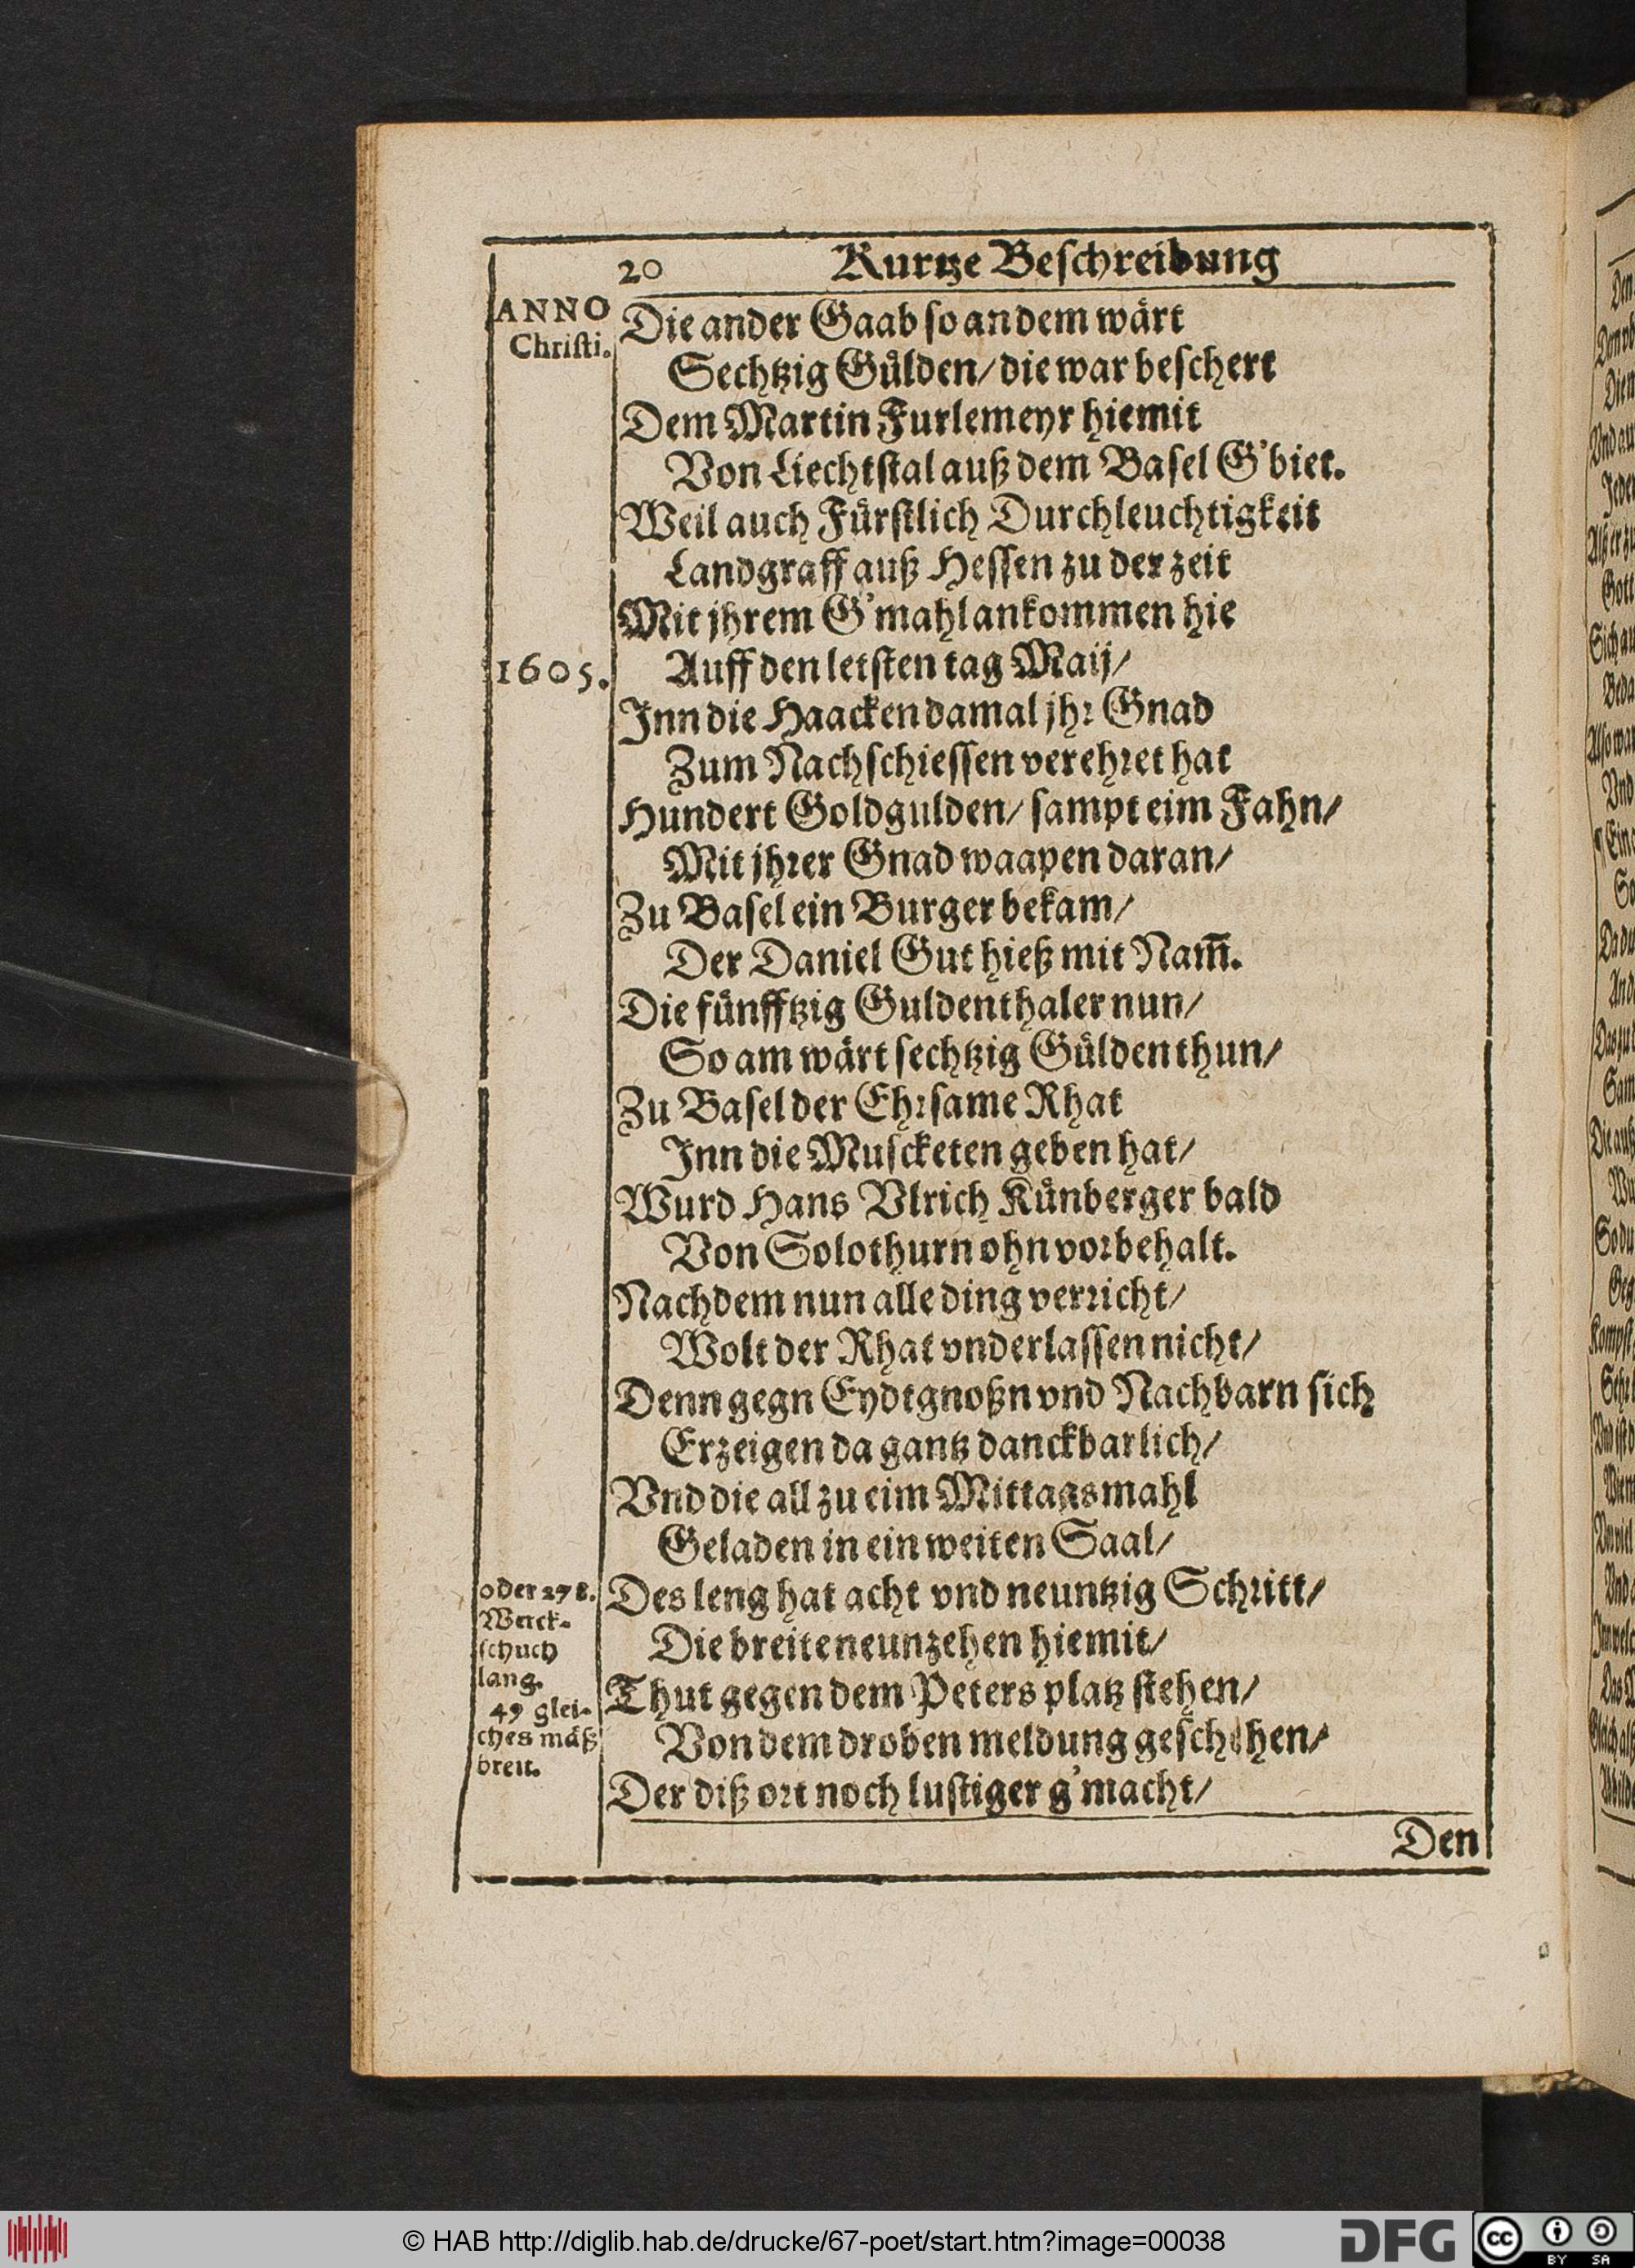 20 Kurtze Beschreibung
ANNO
Christi.
Die ander Gaab so an dem wärt
Sechtzig Gülden/ die war beschert
Dem Martin Furlemeyr hiemit
Von Liechtstal auß dem Basel G'biet.
Weil auch Fürstlich Durchleuchtigkeit
Landgraff auß Hessen zu der zeit
Mit jhrem G'mahl ankommen hie
1605.
Auff den letsten tag Maij/
Inn die Haacken damal jhr Gnad
Zum Nachschiessen verehret hat
Hundert Goldgulden/ sampt eim Fahn/
Mit jhrer Gnad waapen daran/
Zu Basel ein Burger bekam/
Der Daniel Gut hieß mit Nam̃.
Die fünfftzig Guldenthaler nun/
So am wärt sechtzig Gülden thun/
Zu Basel der Ehrsame Rhat
Inn die Muscketen geben hat/
Wurd Hans Vlrich Künberger bald
Von Solothurn ohn vorbehalt.
Nachdem nun alle ding verricht/
Wolt der Rhat vnderlassen nicht/
Denn gegn Eydtgnoßn vnd Nachbarn sich
Erzeigen da gantz danckbarlich/
Vnd die all zu eim Mittagsmahl
Geladen in ein weiten Saal/
oder 278.
Werck-
schuch
lang.
49 glei-
ches mäß
breit.
Des leng hat acht vnd neuntzig Schritt/
Die breite neunzehen hiemit/
Thut gegen dem Peters platz stehen/
Von dem droben meldung geschehen/
Der diß ort noch lustiger g'macht/
Den
© HAB http://diglib.hab.de/drucke/67-poet/start.htm?image=00038
DFG
cc
BY SA